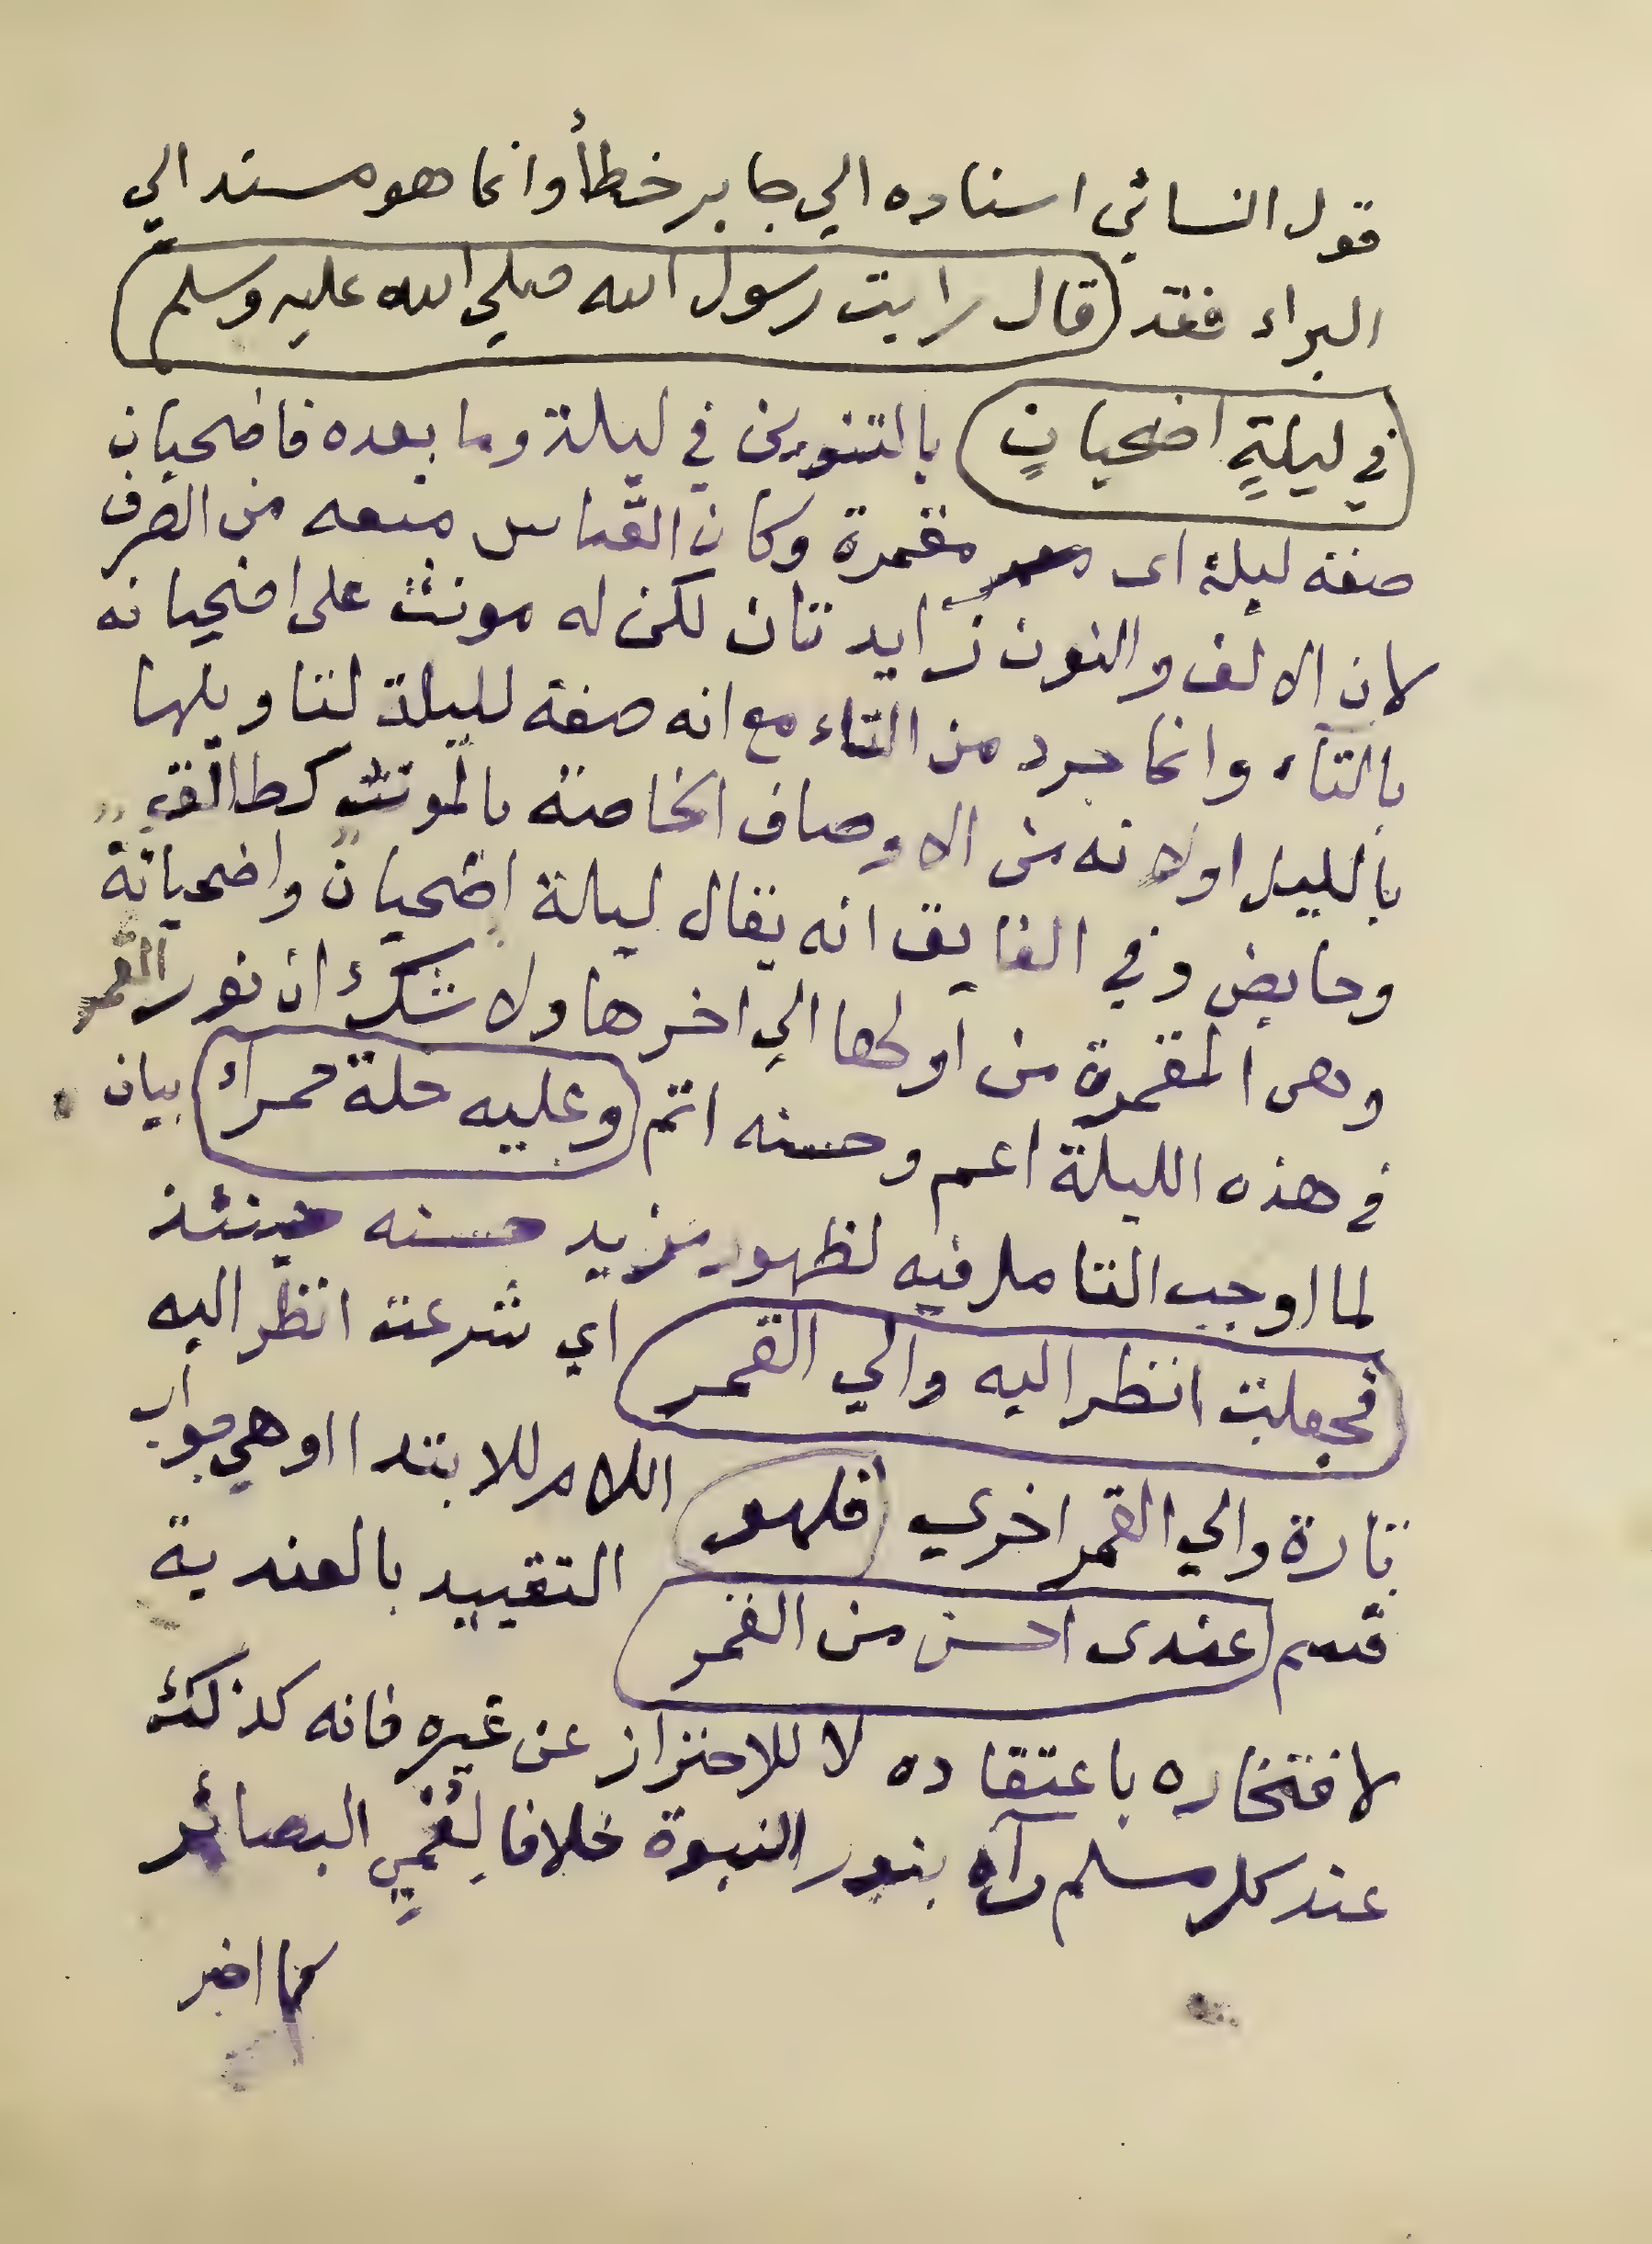 قول النسائي اسناده الي جابر خطأ وانما هو مسند الي
البراء فقد قال رايت رسول الله صلي الله عليه وسلم
في ليلةٍ اضحيانٍ بالتنوين في ليلة وما بعده فاضحيان
صفة ليلة اى مقمرة وكان القياس منعه من الصرف
لان الالف والنون زايدتان لكن له مونث على اضحيانه
بالتاء وانما جرد من التاء مع انه صفة لليلة لتاويلها
بالليل اولانه من الاوصاف الخاصة بالمونث كطالق
وحايض وفي الفايق انه يقال ليلة اضحيان واضحيانة
وهى المقمرة من اولها الي اخرها ولا شك ان نور القمر
في هذه الليلة اعم وحسنه اتم وعليه حلة حمراء بيان
لما اوجب التامل فيه لظهور مزيد حسنه حينئذ
فجعلت انظر اليه والي القمر اي شرعت انظر اليه
تارة والي القمر اخري فلهو اللام للابتدا اوهي جواب
قسم عندى احسن من القمر التقييد بالعندية
لافتخاره باعتقاده لا للاحتراز عن غيره فانه كذلك
عند كل مسلم رآه بنور النبوة خلافا لعمي البصائر
كما اخبر